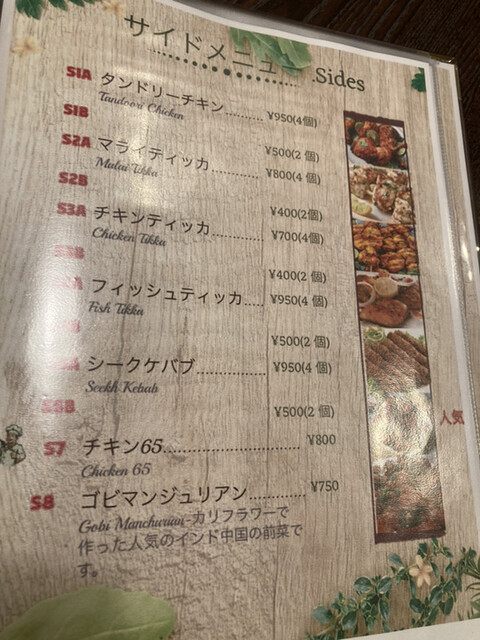 サイドメニュー .Sides
S1A タンドリーチキン..........¥950(4個)
Tandoori Chicken
S1B ¥500(2 個)
S2A マライティッカ............¥800(4 個)
Malai Tikka
S2B ¥400(2個)
S3A チキンティッカ............¥700(4個)
Chicken Tikka
¥400(2 個)
フィッシュティッカ.....¥950(4 個)
Fish Tikka
¥500(2 個)
シークケバブ................¥950(4 個)
Seekh Kebab
¥500(2 個)
人気
S7 チキン65..............................¥800
Chicken 65
S8 ゴビマンジュリアン............¥750
Gobi Manchurian-カリフラワーで
作った人気のインド中国の前菜で
す。